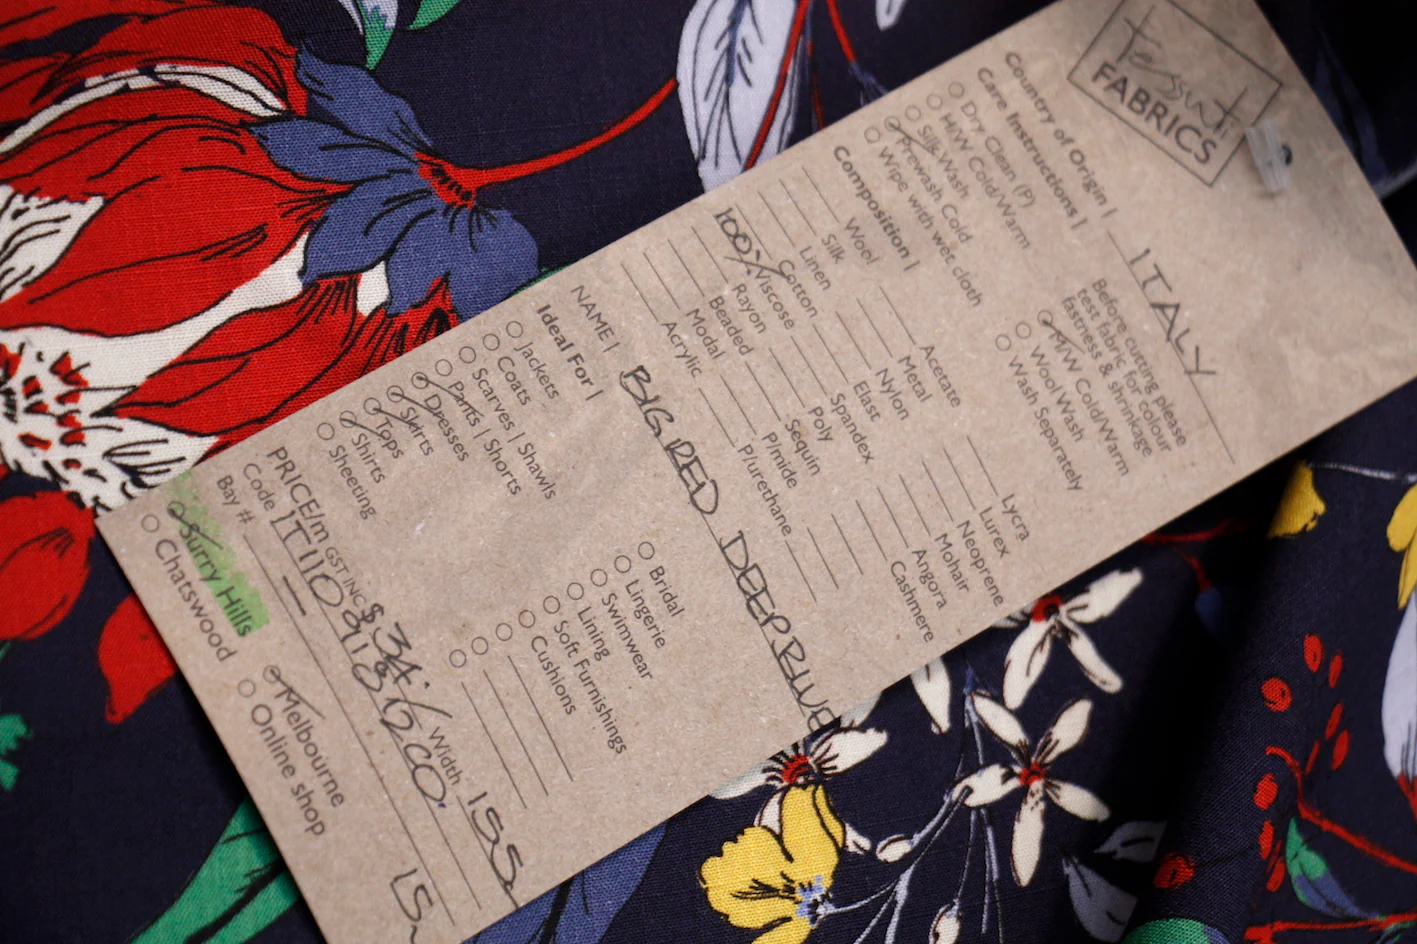 Tessuti
FABRICS
Country of Origin | ITALY
Care Instructions |
Dry Clean (P)
H/W Cold/Warm
Silk Wash
Prewash Cold
Wipe with wet cloth
Before cutting please
test fabric for colour
fastness & shrinkage
M/W Cold/Warm
Wool Wash
Wash Separately
Composition |
Wool
Silk
Linen
Cotton
100% Viscose
Rayon
Beaded
Modal
Acrylic
Acetate
Metal
Nylon
Elast
Spandex
Poly
Sequin
P/mide
P/urethane
Lycra
Lurex
Neoprene
Mohair
Angora
Cashmere
NAME | BIG RED DEEP BLUE
Ideal For |
Jackets
Coats
Scarves | Shawls
Pants | Shorts
Dresses
Skirts
Tops
Shirts
Sheeting
Bridal
Lingerie
Swimwear
Lining
Soft Furnishings
Cushions
PRICE/m GST INC $34./ Width 155
Code
Bay #
Surry Hills
Chatswood
Melbourne
Online shop